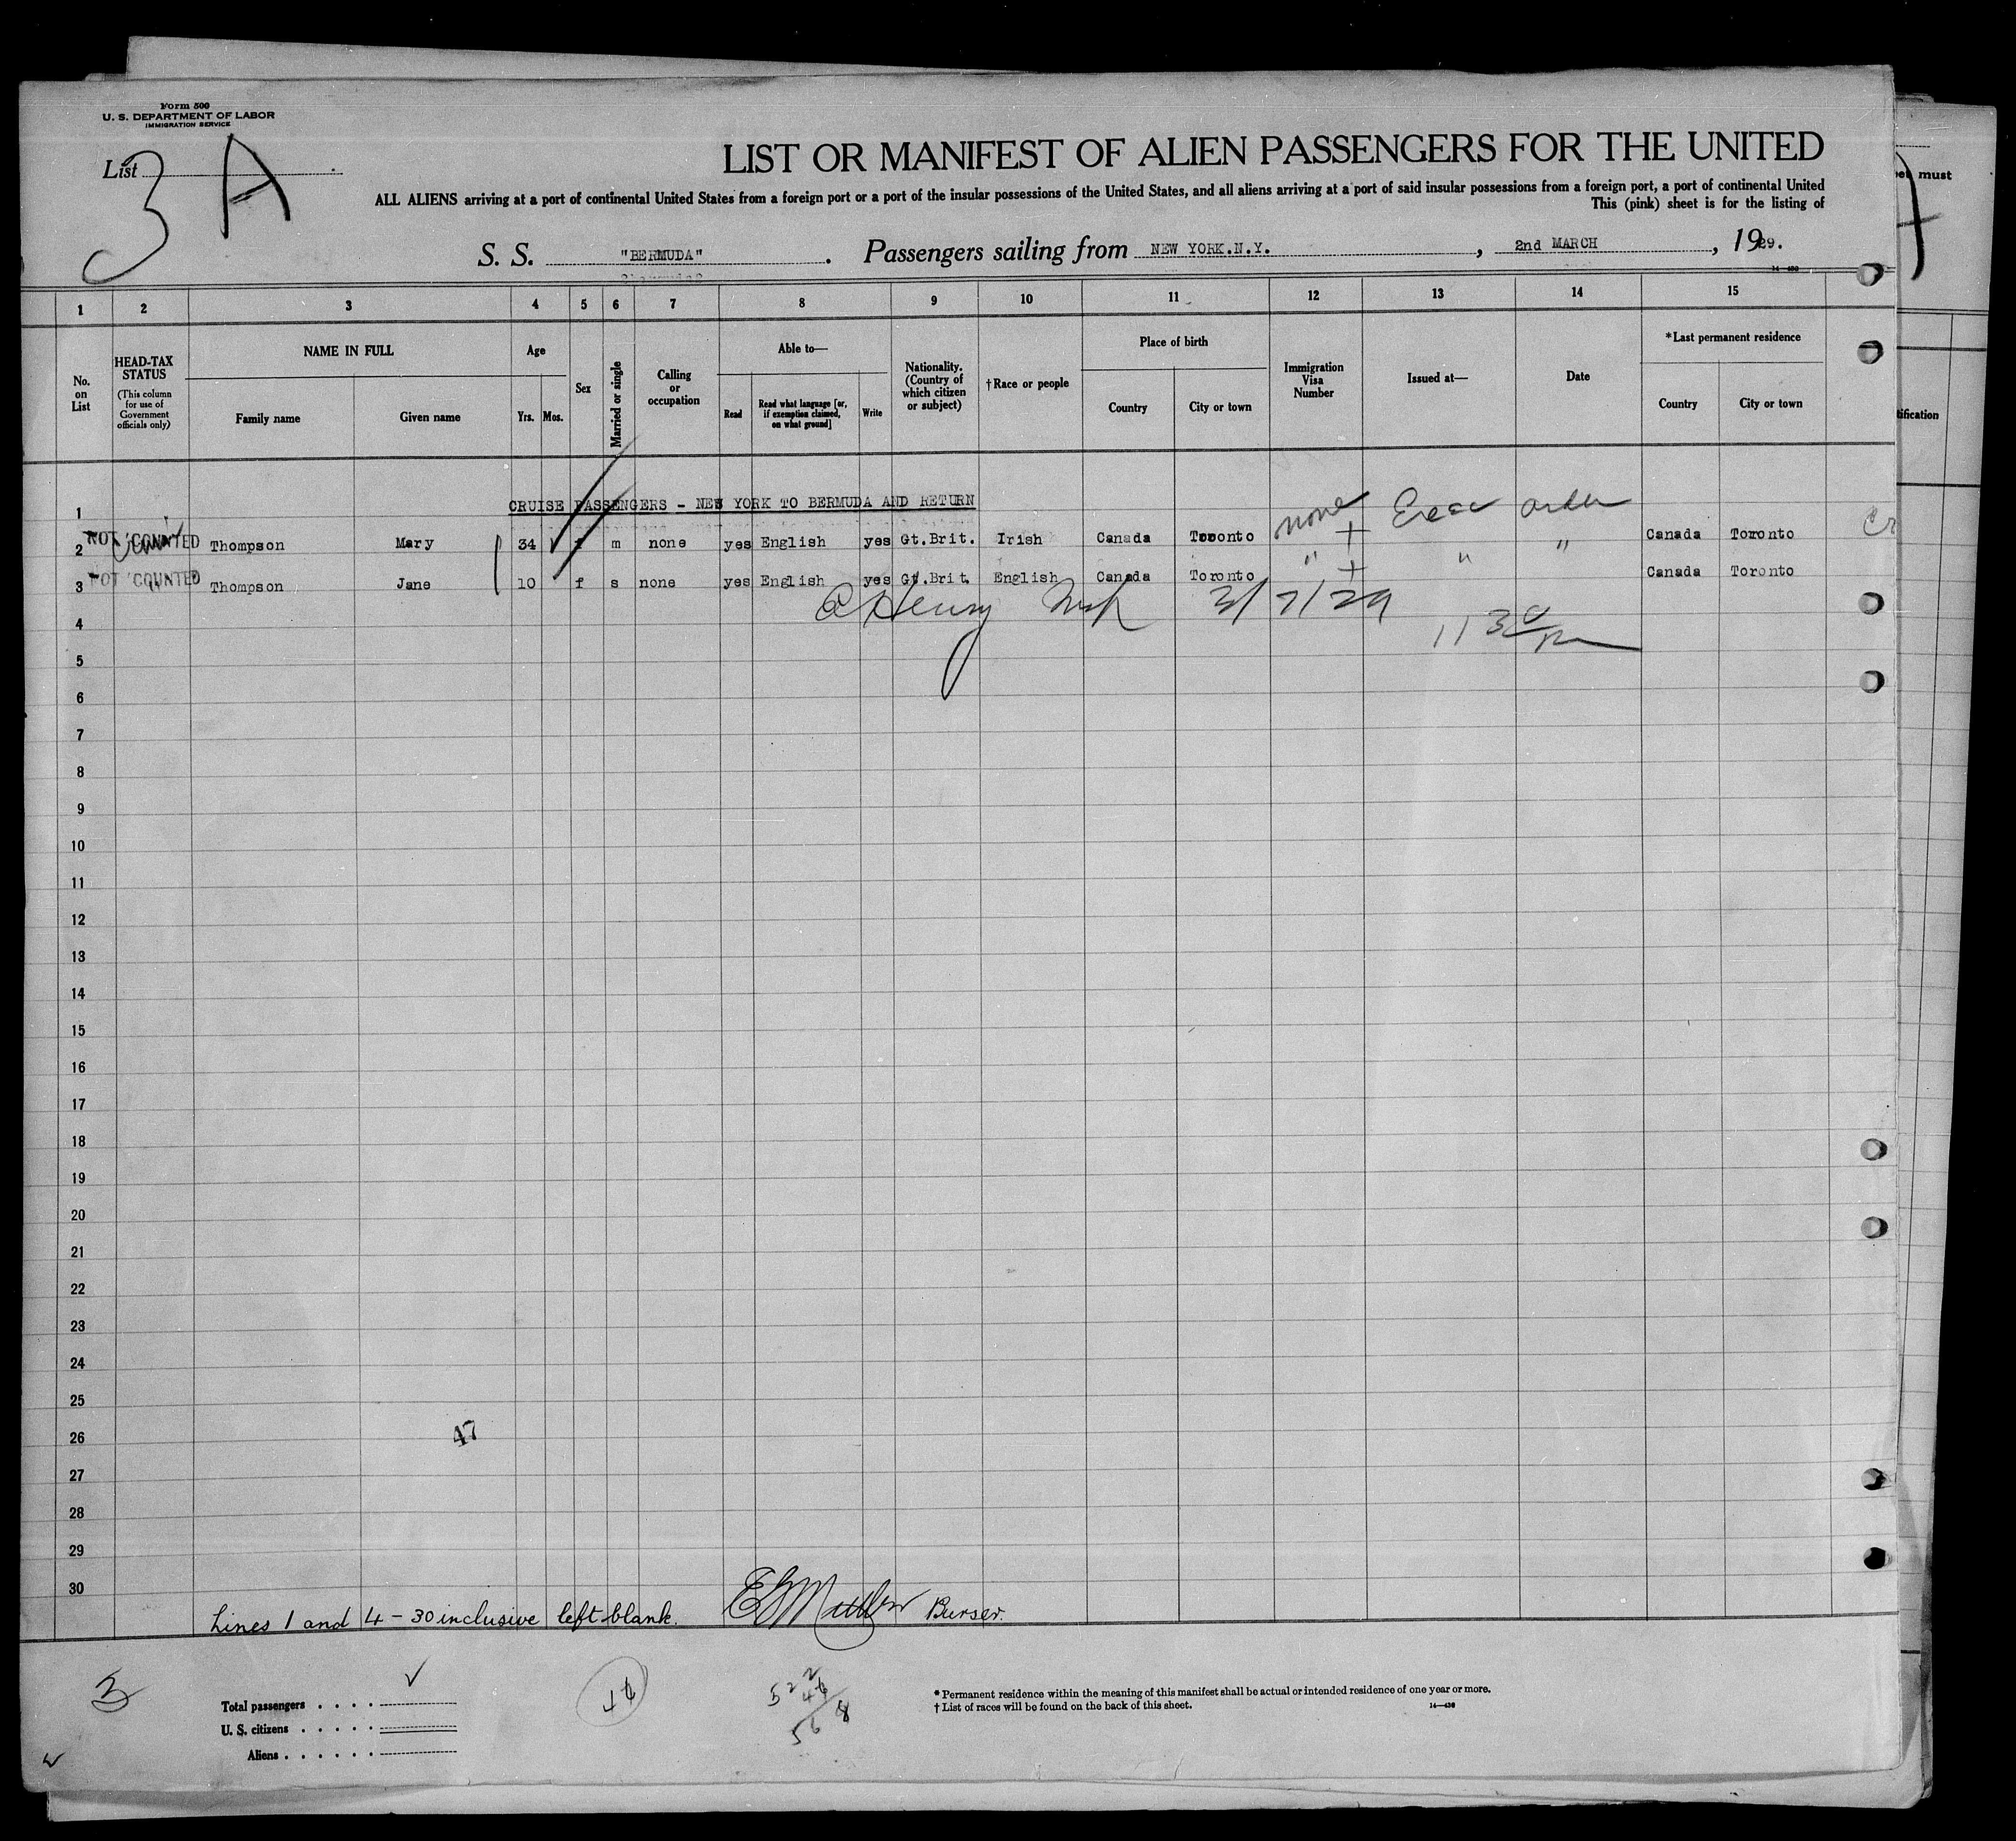 Form 500
U. S. DEPARTMENT OF LABOR
IMMIGRATION SERVICE
List 3 A
LIST OR MANIFEST OF ALIEN PASSENGERS FOR THE UNITED
ALL ALIENS arriving at a port of continental United States from a foreign port or a port of the insular possessions of the United States, and all aliens arriving at a port of said insular possessions from a foreign port, a port of continental United
This (pink) sheet is for the listing of
must
S. S. "BERMUDA" . Passengers sailing from NEW YORK.N.Y. , 2nd MARCH , 1929.
1 2 3 4 5 6 7 8 9 10 11 12 13 14 15
No. on List
HEAD-TAX STATUS
(This column for use of Government officials only)
NAME IN FULL
Family name Given name
Age
Yrs. Mos.
Sex
Married or single
Calling or occupation
Able to—
Read
Read what language [or, if exemption claimed, on what ground]
Write
Nationality. (Country of which citizen or subject)
†Race or people
Place of birth
Country City or town
Immigration Visa Number
Issued at—
Date
*Last permanent residence
Country City or town
1 CRUISE PASSENGERS - NEW YORK TO BERMUDA AND RETURN
2 NOT COUNTED Thompson Mary 34 f m none yes English yes Gt.Brit. Irish Canada Toronto none order Canada Toronto
3 NOT COUNTED Thompson Jane 10 f s none yes English yes Gt.Brit. English Canada Toronto " " " Canada Toronto
Henry 3/7/29
4
11 30 pm
5
6
7
8
9
10
11
12
13
14
15
16
17
18
19
20
21
22
23
24
25
26
47
27
28
29
30
Lines 1 and 4 - 30 inclusive left blank. Purser.
3
Total passengers . . . .
U. S. citizens . . . . .
Aliens . . . . . .
* Permanent residence within the meaning of this manifest shall be actual or intended residence of one year or more.
† List of races will be found on the back of this sheet.
14—430